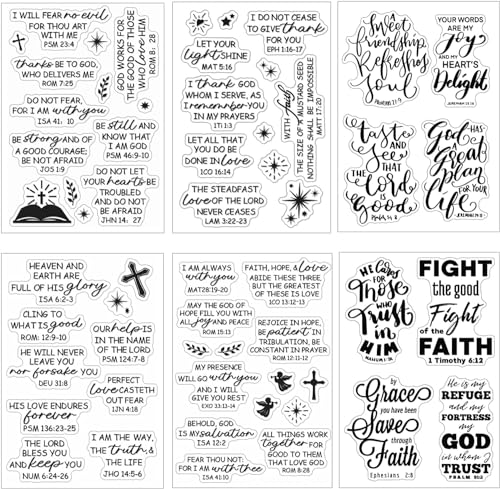 I WILL FEAR no evil
FOR THOU ART
WITH ME
PSM 23:4
thanks BE TO GOD,
WHO DELIVERS ME
ROM 7:25
DO NOT FEAR,
FOR I AM with you
ISA 41:10
BE strong AND OF
A GOOD COURAGE;
BE NOT AFRAID
JOS 1:9
GOD WORKS FOR
THE GOOD OF THOSE
WHO love HIM
ROM 8:28
BE still AND
KNOW THAT
I AM GOD
PSM 46:9-10
DO NOT LET
YOUR hearts BE
TROUBLED
AND DO NOT
BE AFRAID
JHN 14:27
I DO NOT CEASE
TO GIVE thank
FOR YOU
EPH 1:16-17
LET YOUR
light SHINE
MAT 5:16
I thank GOD
WHOM I SERVE, AS
I remember YOU
IN MY PRAYERS
1TI 1:3
WITH faith
THE SIZE OF A MUSTARD SEED
NOTHING SHALL BE IMPOSSIBLE
MAT 17:20
LET ALL THAT
YOU DO BE
DONE IN love
1CO 16:14
THE STEADFAST
love OF THE LORD
NEVER CEASES
LAM 3:22-23
A
Sweet
friendship
Refreshes
the
Soul
YOUR WORDS
ARE MY
Joy
AND MY
HEART'S
Delight
JEREMIAH 15:16
Taste
and
See that
the
Lord is
Good
God
Has
a
Great
plan
for
Your
Life
HEAVEN AND
EARTH ARE
FULL OF HIS glory
ISA 6:2-3
CLING TO
WHAT IS good
ROM: 12:9-10
HE WILL NEVER
LEAVE YOU
nor forsake YOU
DEU 31:8
HIS LOVE ENDURES
forever
PSM 136:23-25
THE LORD
BLESS YOU
AND keep YOU
NUM 6:24-26
OUR help IS
IN THE NAME
OF THE LORD
PSM 124:7-8
PERFECT
love CASTETH
OUT FEAR
1JN 4:18
I AM THE WAY,
THE truth, &
THE LIFE
JHO 14:5-6
I AM ALWAYS
with you
MAT28:19-20
FAITH, HOPE, & love
ABIDE THESE THREE,
BUT THE GREATEST
OF THESE IS LOVE
1CO 13:12-13
MAY THE GOD OF
HOPE FILL YOU WITH
ALL joy AND PEACE
ROM 15:13
REJOICE IN HOPE,
BE patient IN
TRIBULATION, BE
CONSTANT IN PRAYER
ROM 12:11-12
MY PRESENCE
WILL GO with you
AND I WILL
GIVE YOU REST
EXO 33:13-14
BEHOLD, GOD
IS MY salvation
ISA 12:2
FEAR THOU NOT:
FOR I AM with thee
ISA 41:10
ALL THINGS WORK
together FOR
GOOD TO THEM
THAT LOVE GOD
ROM 8:28
HE Cares
for
Those
WHO
Trust
in
HIM
NAHUM 1:7
FIGHT
the good
Fight
of the
FAITH
1 Timothy 6:12
by
Grace
you have been
Save
through
Faith
Ephesians 2:8
He is my
REFUGE
and my
FORTRESS
my
GOD
in whom I
TRUST
PSALM 91:2